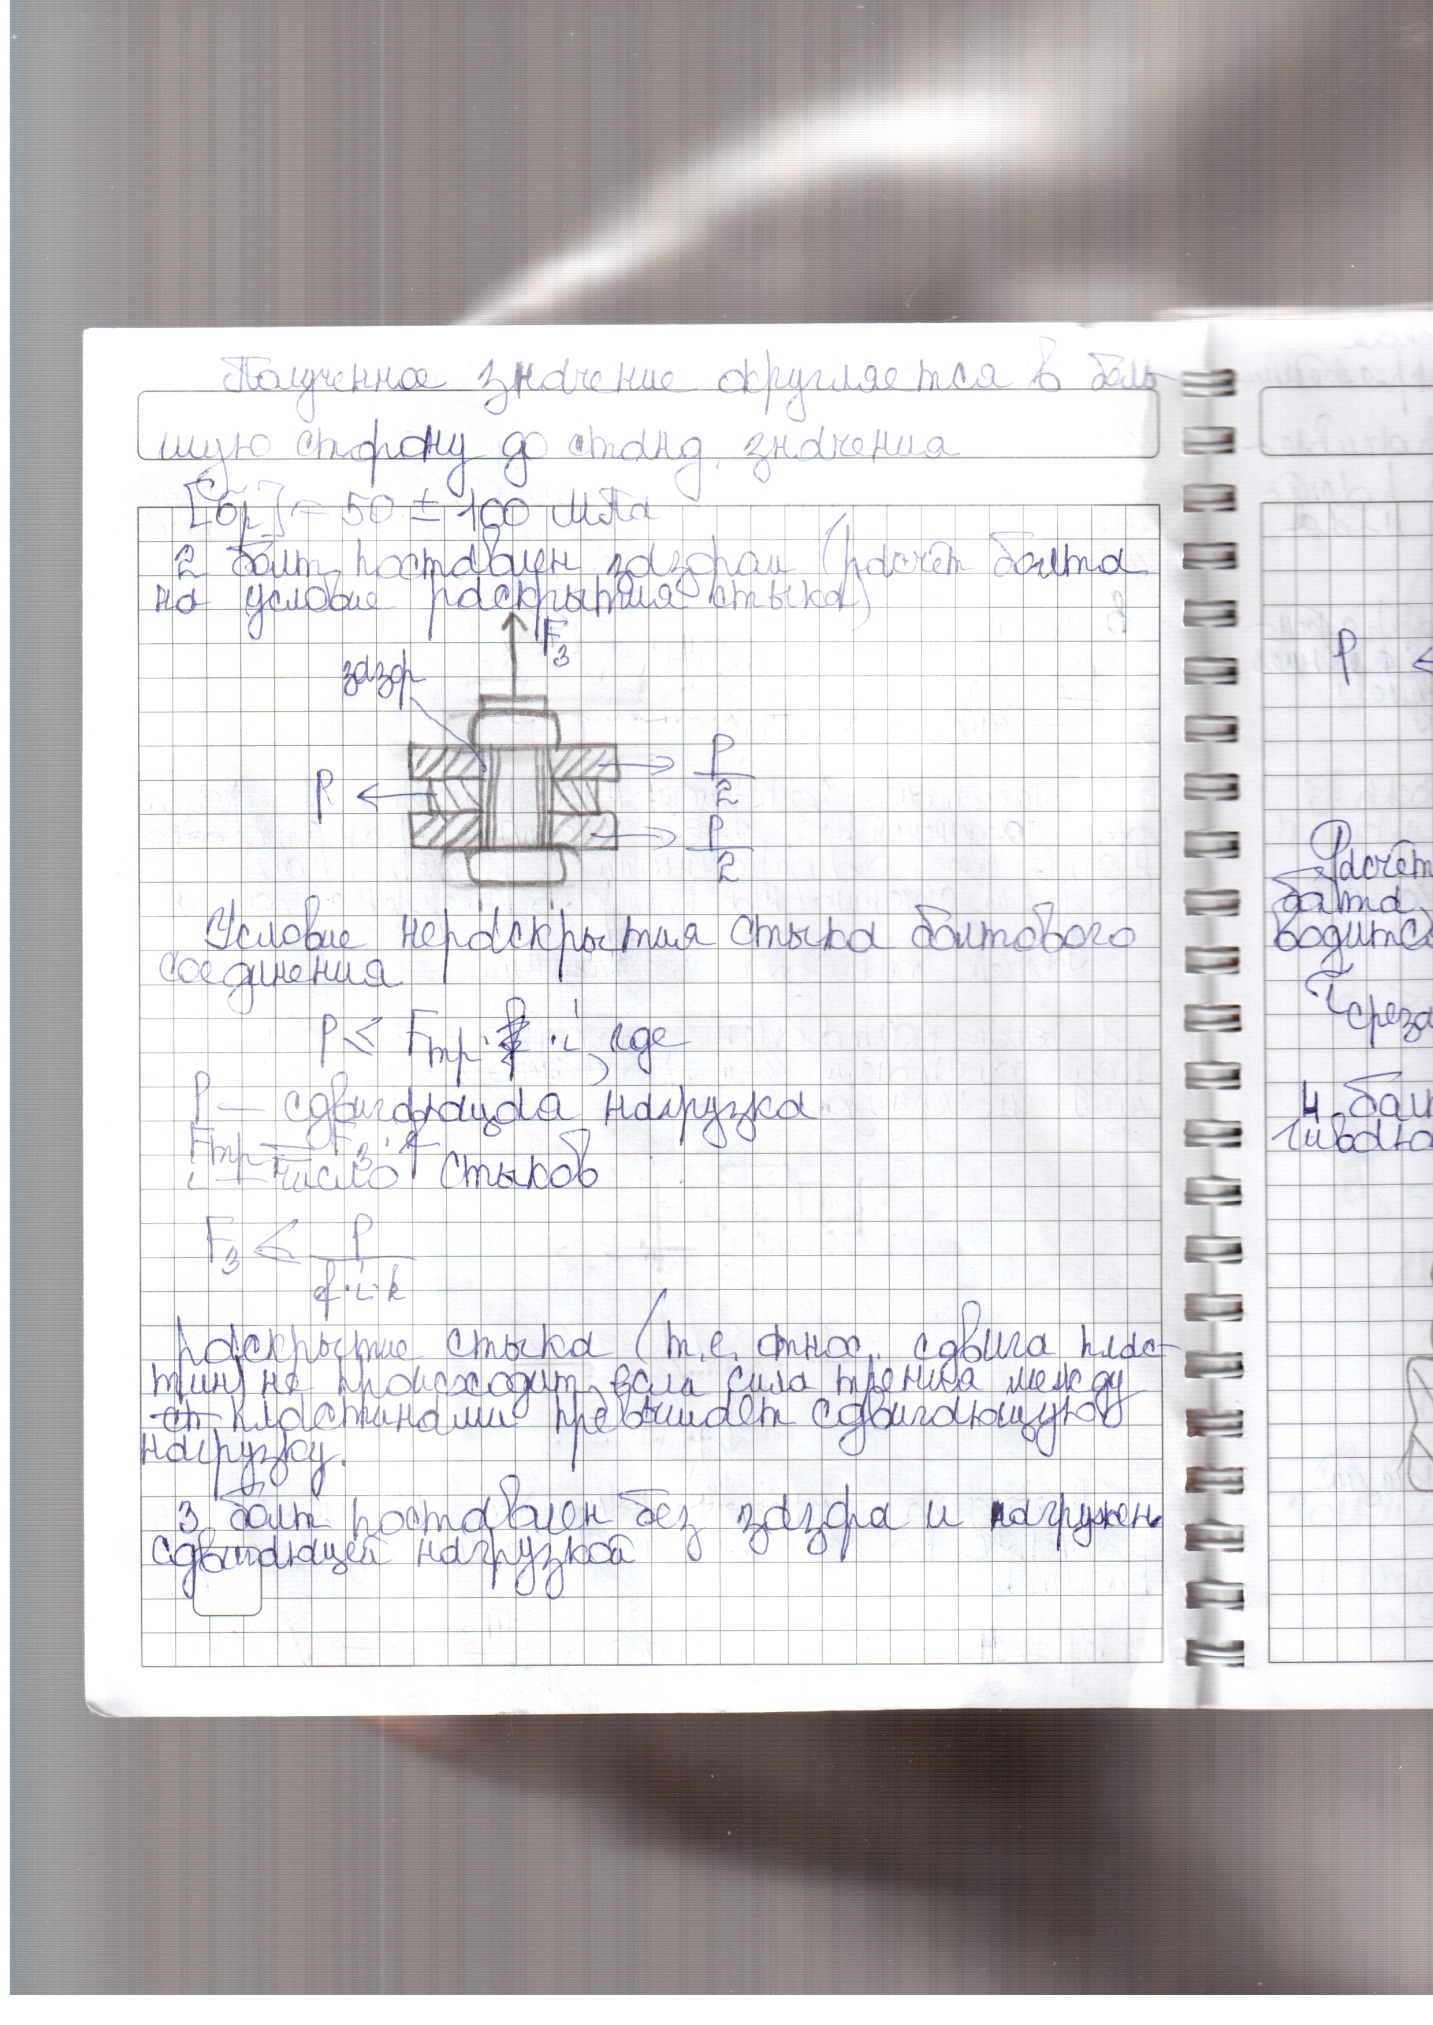 Полученное значение округляется в боль-
шую сторону до станд. значения
[σр] = 50 ± 100 МПа
2 болт поставлен зазором (расчёт болта
на условие раскрытия стыка)
F₃
зазор
P
P/2
P/2
Условие нераскрытия стыка болтового
соединения
P ≤ Fтр · i, где
P — сдвигающая нагрузка
Fтр = F₃ · f
i — число стыков
F₃ ≤ P/(f·i·k)
раскрытие стыка (т.е. относ. сдвига плас-
тин) не происходит, если сила трения между
пластинами превышает сдвигающую
нагрузку.
3 болт поставлен без зазора и нагружен
сдвигающей нагрузкой
P
Расчёт
болта
водится
τсреза
4. бол